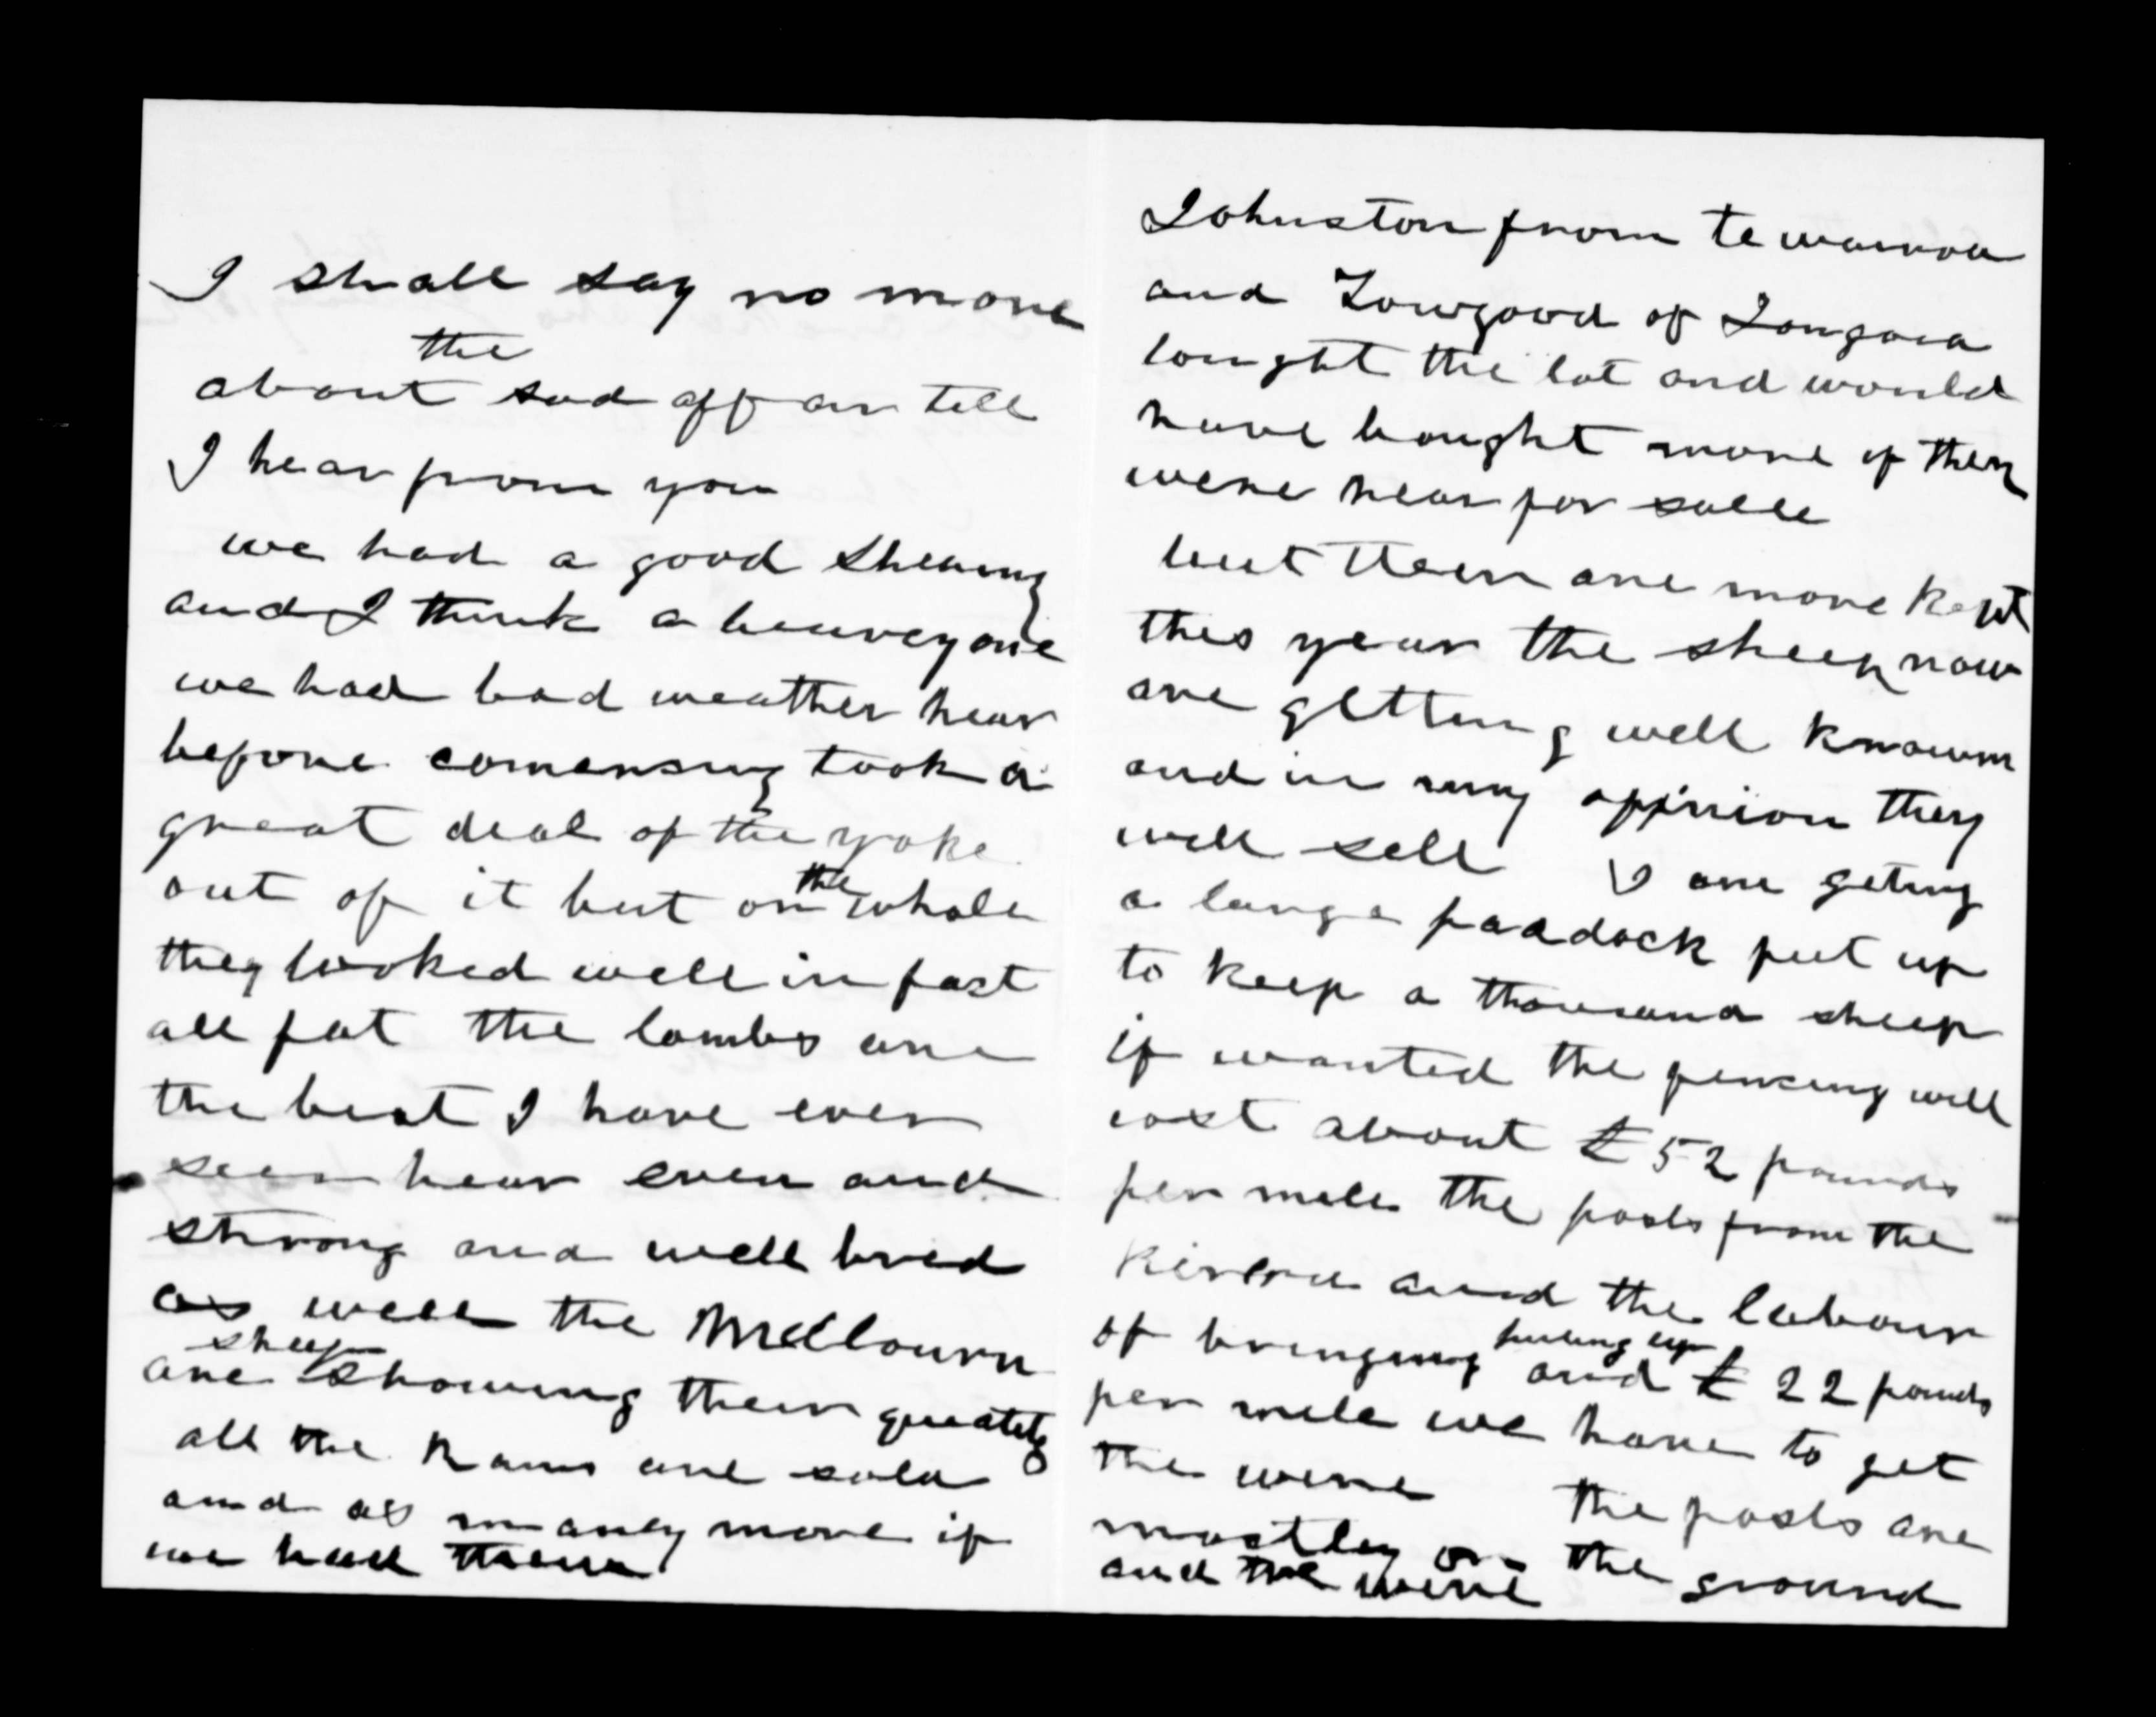 I shall say no more
the
about sad affair till
I hear from you
we had a good Shearing
and I think a heavey one
we had bad weather hear
before comensing took a
great deal of the yoke
out of it but on the whole
they looked well in fact
all fat the lambs are
the best I have ever
seen hear even and
strong and well bred
as well the Mellourn
sheep
are Showing their queality
all the Rams are sold
and as maney more if
we had them
Johnston from te wairoa
and Towgood of Tongoia
bought the lot and would
have bought more if they
were hear for salle
but their are more kept
this year the sheep now
are getting well knowm
and in my oppinion they
will sell I am geting
a large paadock put up
to keep a thousand sheep
if wanted the fencing will
cost about £52 pounds
per mile the posts from the
and the labour
of bringing and £22 pounds
per mile we have to get
the wire the posts are
mostley on the ground
and the wire